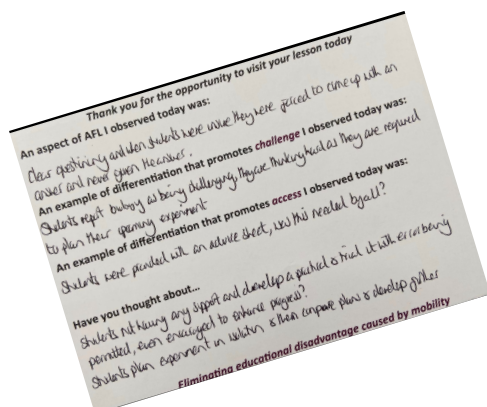 Thank you for the opportunity to visit your lesson today
An aspect of AFL I observed today was:
Clear questioning and when students were unsure they were forced to come up with an
answer and never given the answer.
An example of differentiation that promotes challenge I observed today was:
Students report biology as being challenging, they are thinking hard as they are required
to plan their opening experiment
An example of differentiation that promotes access I observed today was:
Students were provided with an advice sheet, was this needed by all?
Have you thought about...
Students not having any support and develop a practical & trial it with error being
permitted, even encouraged to enhance progress?
Students plan experiment in isolation & then compare plans & develop further
Eliminating educational disadvantage caused by mobility